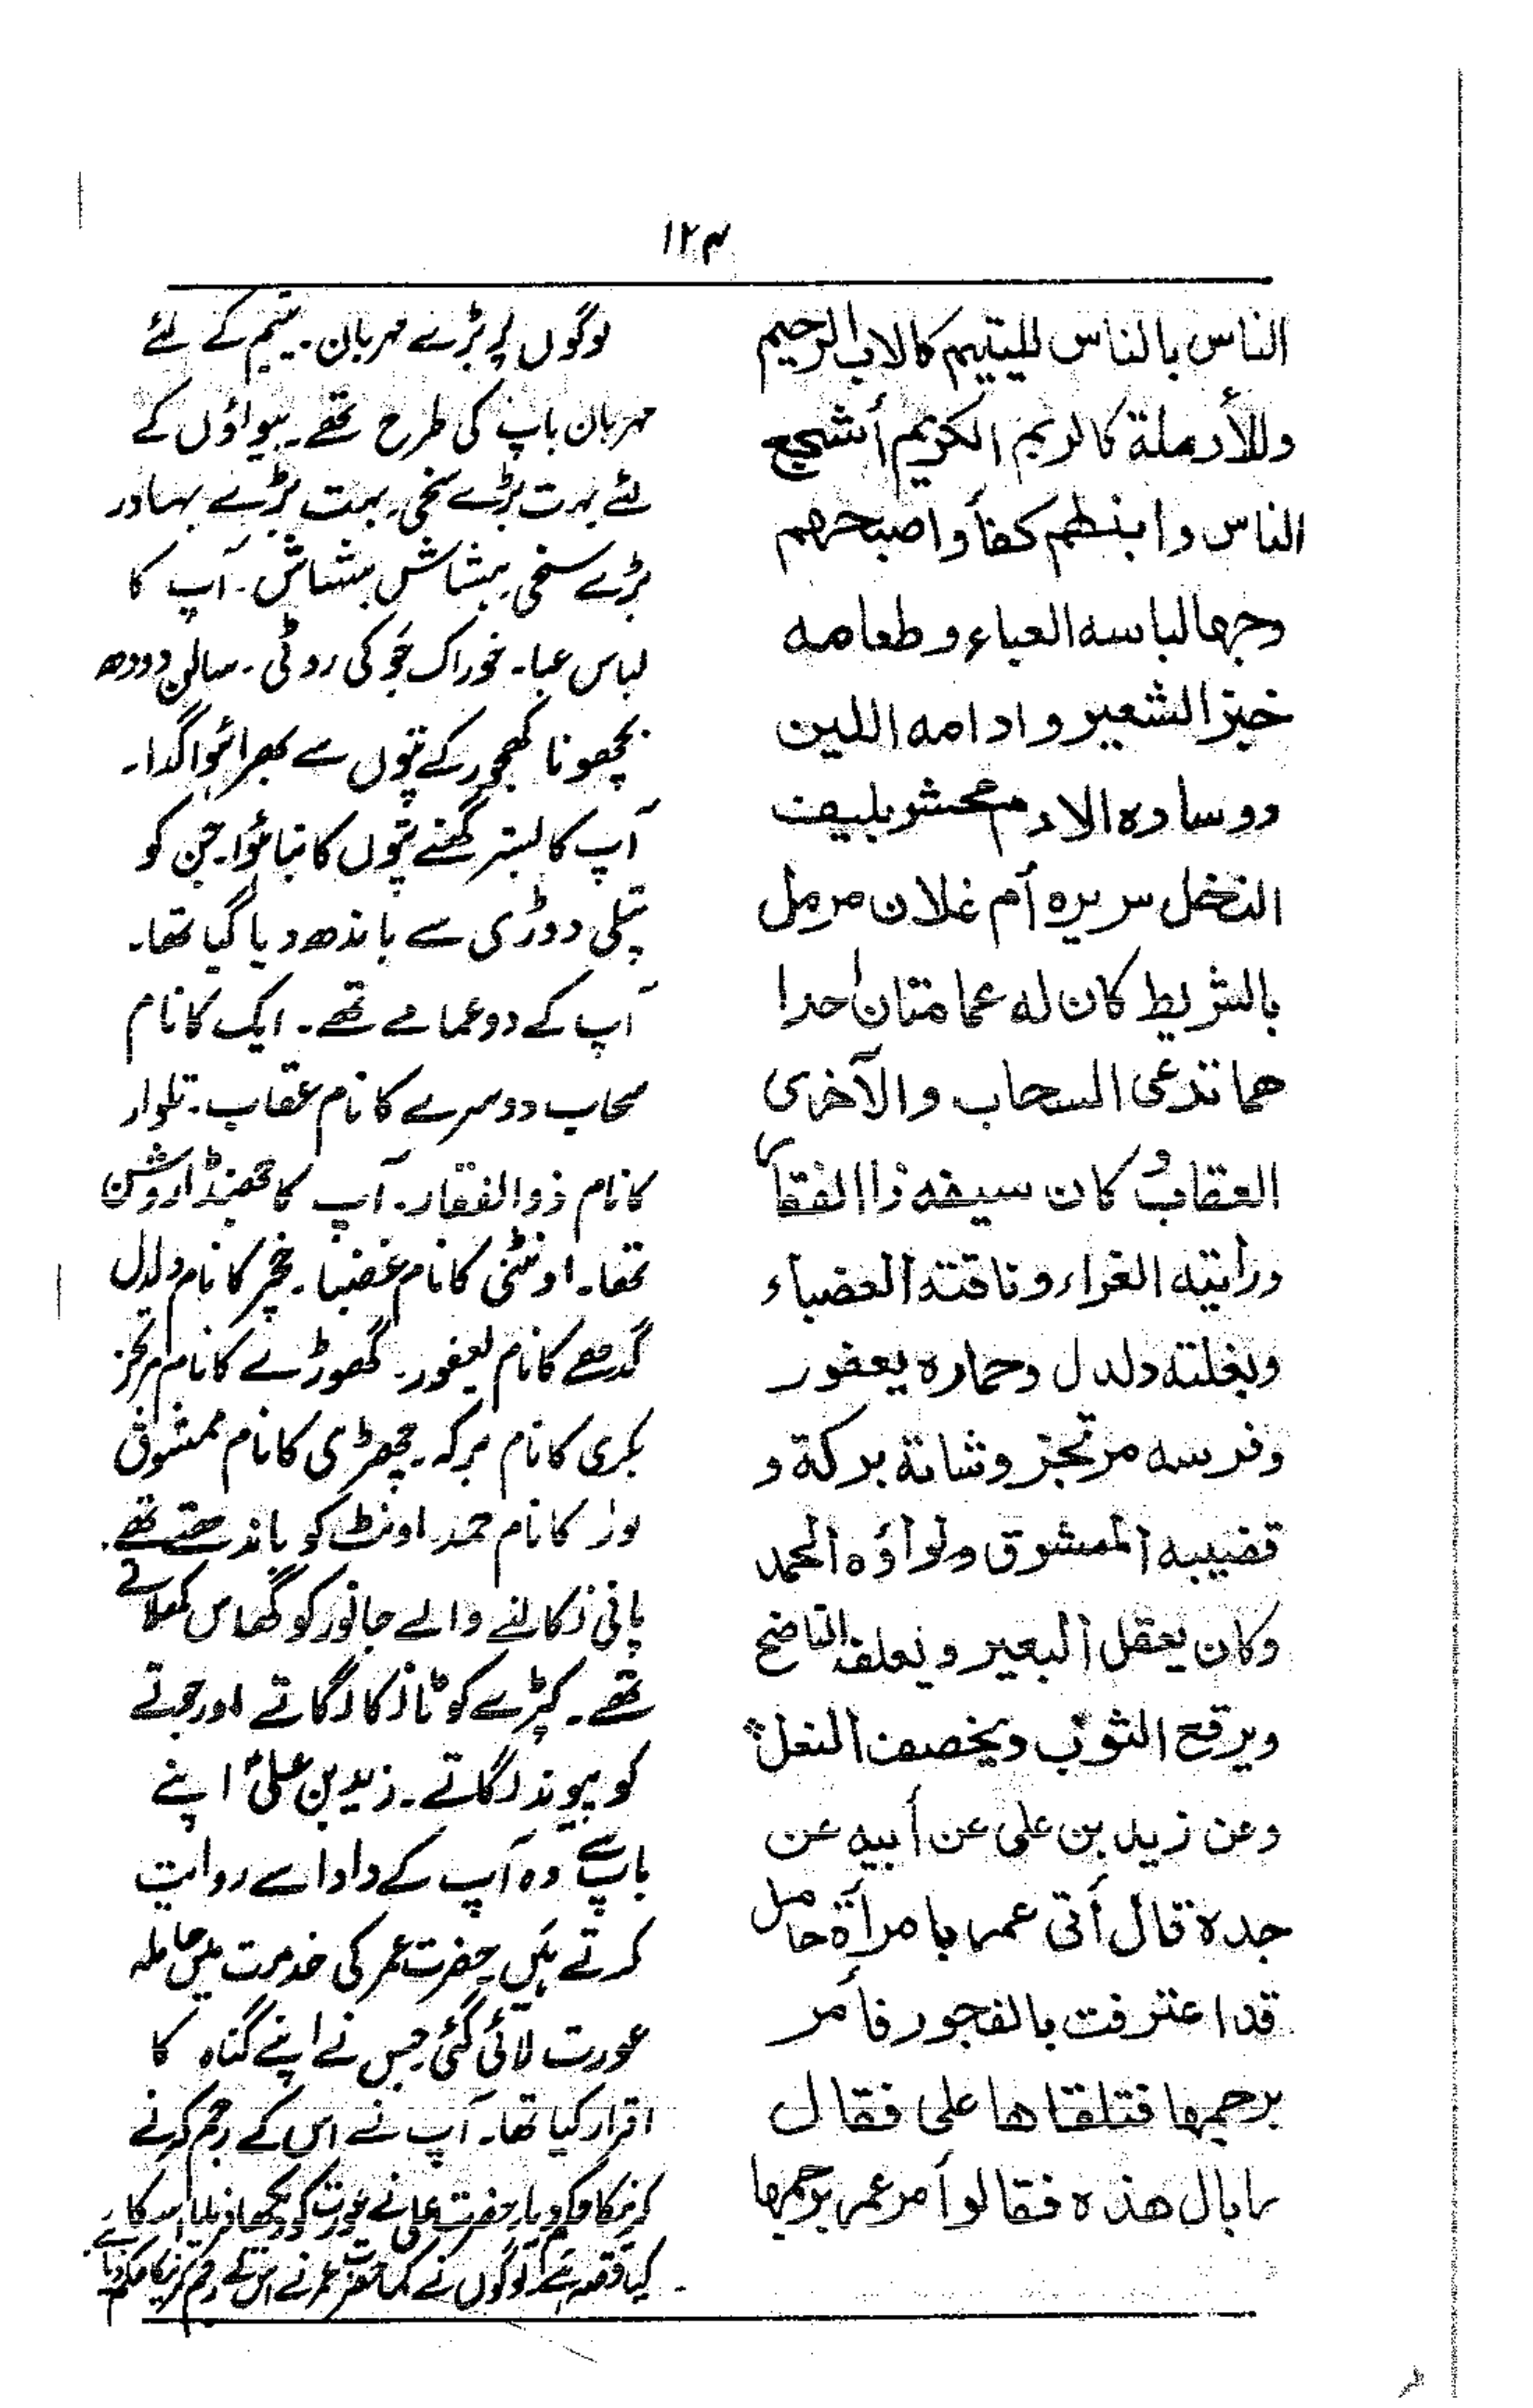 ۱۲۴
الناس بالناس لليتيم كالاب الرحيم
وللأرملة كالريم الكريم أشجع
الناس وابنطهم كفأ واصبحهم
وجها لباسه العباء وطعامه
خبز الشعير وادامه اللبن
ووساده الادم محشو بليف
النخل سريره أم غلان مرمل
بالشريط كان له عمامتان احدا
هما تدعى السحاب والآخرى
العقاب وكان سيفه ذا الفقار
ورأيته الغراء وناقته العضباء
وبغلته دلدل وحماره يعفور
وفرسه مرتجز وشاتة بركة و
قضيبه الممشوق ولواؤه الحمد
وكان يعقل البعير ويعلف الناضح
ويرقع الثوب ويخصف النعل
وعن زيد بن على عن أبيه عن
جدة قال أتى عمر بامرأة حامل
قد اعترفت بالفجور فأمر
برجمها فتلقاها على فقال
ما بال هذه فقالوا أمر عمر برجمها
لوگوں پر بڑے مہربان۔ یتیم کے لئے
مہربان باپ کی طرح تھے۔ بیواؤں کے
لئے بہت بڑے سخی۔ بہت بڑے بہادر
بڑے سخی ہشاش بشاش۔ آپ کا
لباس عبا۔ خوراک جَو کی روٹی۔ سالن دودھ
بچھونا کھجور کے پتوں سے بھرا ہُوا گدا۔
آپ کا بستر گھنے پتوں کا بنا ہُوا۔ جن کو
پتلی دوڑی سے باندھ دیا گیا تھا۔
آپ کے دو عمامے تھے۔ ایک کا نام
سحاب دوسرے کا نام عقاب۔ تلوار
کا نام ذوالفقار۔ آپ کا جھنڈا روشن
تھا۔ اونٹنی کا نام غضبا۔ خچر کا نام دلدل
گدھے کا نام یعفور۔ گھوڑے کا نام مرتجز
بکری کا نام برکہ۔ چھڑی کا نام ممشوق
لوأ کا نام حمد۔ اونٹ کو باندھتے تھے۔
پانی نکالنے والے جانور کو گھاس کھلاتے
تھے۔ کپڑے کو ٹانکا لگاتے اور جوتے
کو پیوند لگاتے۔ زید بن علیؑ اپنے
باپ سے وہ آپ کے دادا سے روایت
کرتے ہیں۔ حضرت عمر کی خدمت میں حاملہ
عورت لائی گئی جس نے اپنے گناہ کا
اقرار کیا تھا۔ آپ نے اس کے رجم کرنے
کرنیکا حکم دیا۔ حضرت علی نے عورت کو دیکھا فرمایا اس کا
کیا قصہ ہے لوگوں نے کہا حضرت عمر نے اس کے رجم کرنیکا حکم دیا ہے۔